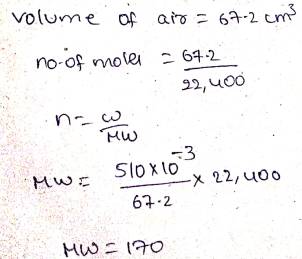 volume of air = 67.2 cm³
no. of moles = 67.2 / 22,400
n = w / MW
MW = 510 × 10⁻³ / 67.2 × 22,400
MW = 170